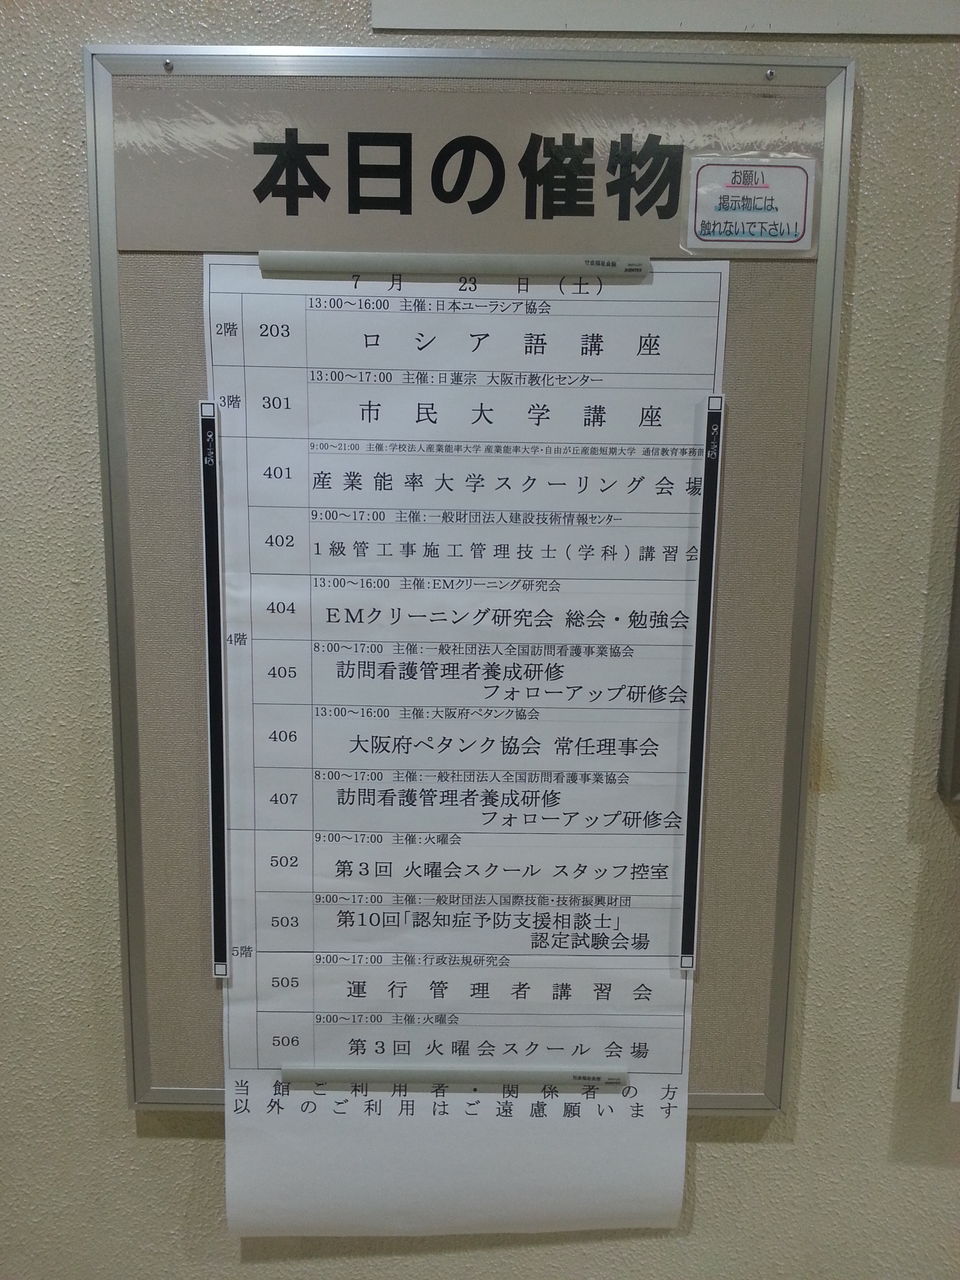 本日の催物
お願い
掲示物には、
触れないで下さい！
7月 23日（土）
2階
203
13:00～16:00 主催:日本ユーラシア協会
ロシア語講座
3階
301
13:00～17:00 主催:日蓮宗 大阪市教化センター
市民大学講座
4階
401
9:00～21:00 主催:学校法人産業能率大学 産業能率大学・自由が丘産能短期大学 通信教育事務部
産業能率大学スクーリング会場
402
9:00～17:00 主催:一般財団法人建設技術情報センター
1級管工事施工管理技士(学科)講習会
404
13:00～16:00 主催:EMクリーニング研究会
EMクリーニング研究会 総会・勉強会
405
8:00～17:00 主催:一般社団法人全国訪問看護事業協会
訪問看護管理者養成研修
フォローアップ研修会
406
13:00～16:00 主催:大阪府ペタンク協会
大阪府ペタンク協会 常任理事会
407
8:00～17:00 主催:一般社団法人全国訪問看護事業協会
訪問看護管理者養成研修
フォローアップ研修会
5階
502
9:00～17:00 主催:火曜会
第3回 火曜会スクール スタッフ控室
503
9:00～17:00 主催:一般財団法人国際技能・技術振興財団
第10回「認知症予防支援相談士」
認定試験会場
505
9:00～17:00 主催:行政法規研究会
運行管理者講習会
506
9:00～17:00 主催:火曜会
第3回 火曜会スクール 会場
当館ご利用者・関係者の方
以外のご利用はご遠慮願います